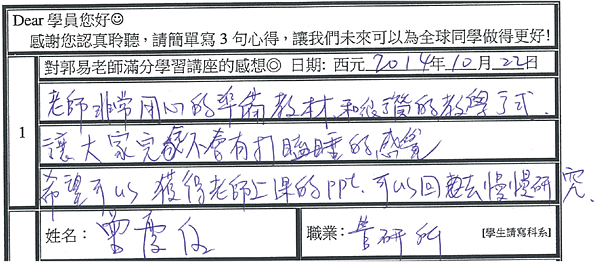 Dear 學員您好☺
感謝您認真聆聽，請簡單寫 3 句心得，讓我們未來可以為全球同學做得更好!
對郭易老師滿分學習講座的感想◎ 日期: 西元 2014年 10月 22日
1
老師非常用心的準備教材和很的教學方式.
讓大家完全不會有打瞌睡的感覺
希望可以獲得老師上課的ppt. 可以回去慢慢研究.
姓名： 曾慶
職業： 管研所 【學生請寫科系】